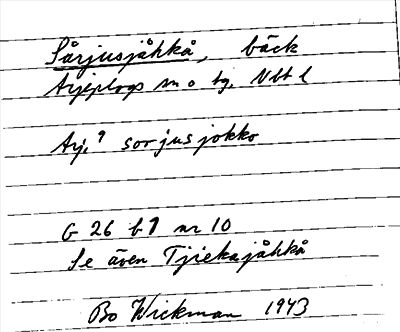 Sårjusjåhkå, bäck
Arjeplogs sn o tg, Vbt l
Arj. 9 sorjusjokko
G 26 b 9 nr 10
Se även Tjiekajåhkå
Bo Wickman 1943